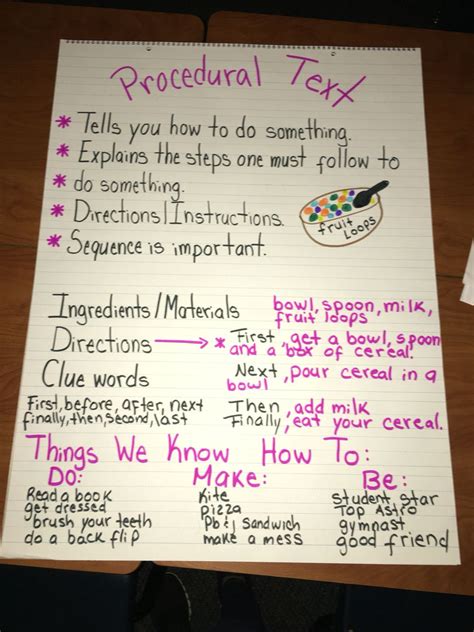 Procedural Text
* Tells you how to do something.
* Explains the steps one must follow to
* do something.
* Directions/Instructions.
* Sequence is important.
fruit Loops
Ingredients/Materials bowl, spoon, milk,
fruit loops
Directions → * First, get a bowl, spoon
and a box of cereal.
Clue words Next, pour cereal in a
bowl
First, before, after, next Then, add milk
finally, then, second, last Finally, eat your cereal.
Things We Know How To:
Do: Make: Be:
Read a book Kite student star
get dressed pizza Top Astro
brush your teeth Pb&j sandwich gymnast
do a back flip make a mess good friend